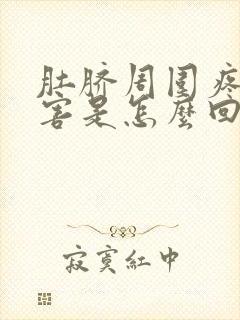 肚脐周围疼
害是怎麼回
寂寞紅中